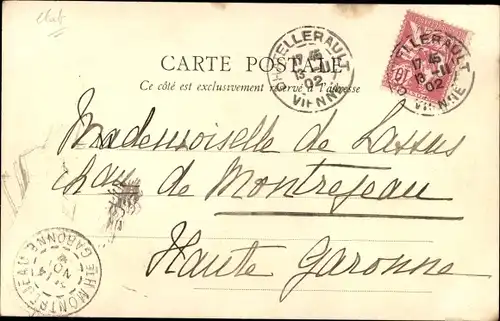 Clat
CARTE POSTALE
Ce côté est exclusivement réservé à l'adresse
CHATELLERAULT
17 45
13 11
02
VIENNE
CHATELLERAULT
17 45
13 11
02
VIENNE
10
Mademoiselle de Lassus
chau de Montrejeau
Haute Garonne
MONTREJEAU
HTE GARONNE
14
NOV